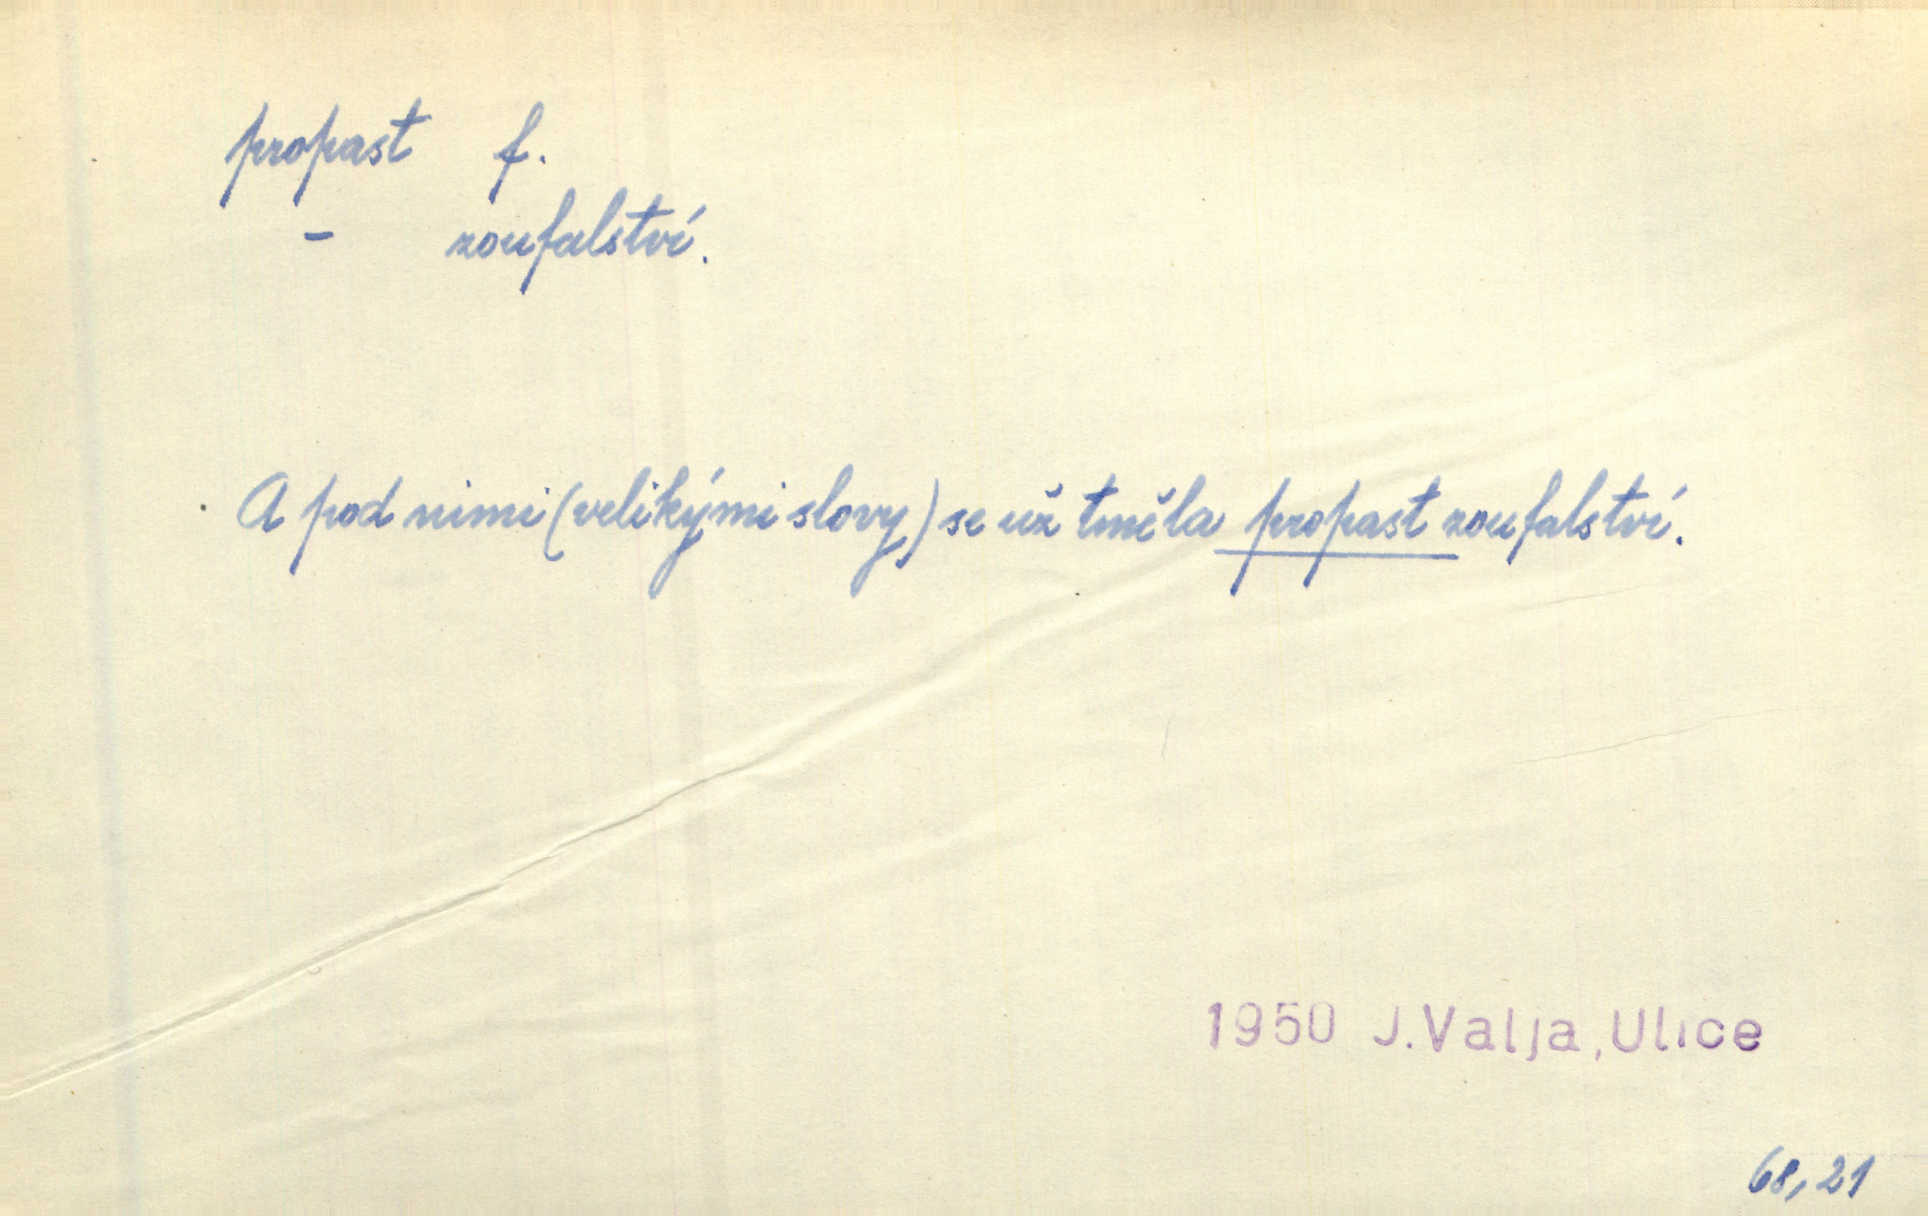 propast f.
- zoufalství.
A pod nimi (velikými slovy) se už tměla propast zoufalství.
1950 J.Valja,Ulice
68,21